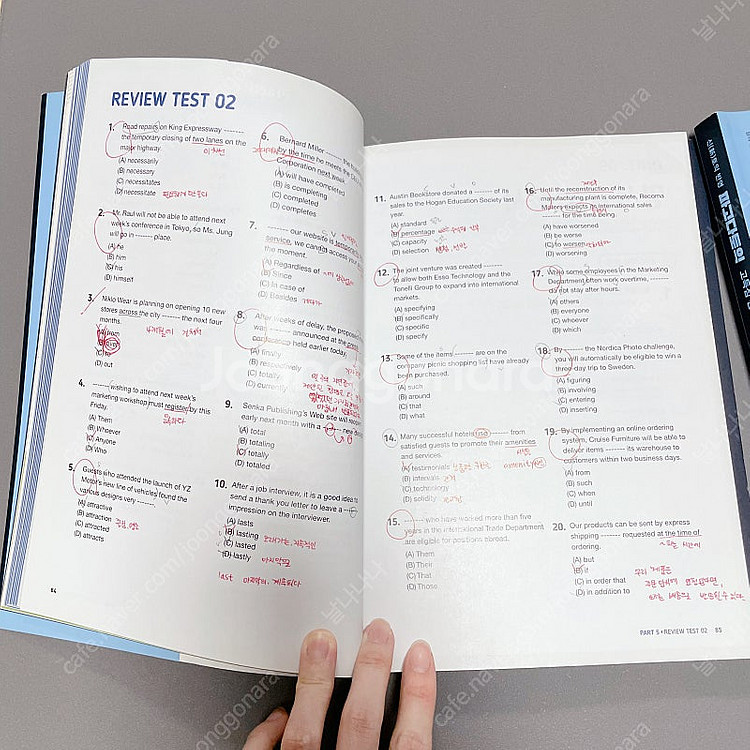 REVIEW TEST 02
1. Road repairs on King Expressway -------
the temporary closing of two lanes on the
major highway.
(A) necessarily
(B) necessary
(C) necessitates
(D) necessitate
2. Mr. Raul will not be able to attend next
week's conference in Tokyo, so Ms. Jung
will go in ------- place.
(A) he
(B) him
(C) his
(D) himself
3. Nikio Wear is planning an opening 10 new
stores across the city ------- the next four
months.
(A) from
(D) out
4. ------- wishing to attend next week's
marketing workshop must register by this
Friday.
(A) Them
(B) Whoever
(C) Anyone
(D) Who
5. Guests who attended the launch of YZ
Motor's new line of vehicles found the
various designs very -------.
(A) attractive
(B) attraction
(C) attracted
(D) attracts
64
6. Bernard Miller ------- the
by the time he meets the
Corporation next week
(A) will have completed
(B) is completing
(C) completed
(D) completes
7. ------- our website is
service, we can access your
the moment.
(A) Regardless of
(B) Since
(C) In case of
(D) Besides
8. After weeks of delay, the proposed
was ------- announced at the
conference held earlier today.
(A) firstly
(B) respectively
(C) totally
(D) currently
9. Senka Publishing's Web site will
early next month with a ------- new
(A) total
(B) totaling
(C) totally
(D) totaled
10. After a job interview, it is a good idea to
send a thank you letter to leave a -------
impression on the interviewer.
(A) lasts
(B) lasting
(C) lasted
(D) lastly
마지막으로
last
11. Austin Bookstore donated a ------- of its
sales to the Hogan Education Society last
year.
(A) standard
(B) percentage
(C) capacity
(D) selection
12. The joint venture was created -------
to allow both Esso Technology and the
Tonelli Group to expand into international
markets.
(A) specifying
(B) specifically
(C) specific
(D) specify
13. Some of the items ------- are on the
company picnic shopping list have already
been purchased.
(A) such
(B) around
(C) that
(D) what
14. Many successful hotels ------- from
satisfied guests to promote their amenities
and services.
(A) testimonials
(B) intervals
(C) technology
(D) solidity
15. ------- who have worked more than five
years in the International Trade Department
are eligible for positions abroad.
(A) Them
(B) Their
(C) That
(D) Those
16. Until the reconstruction of its
manufacturing plant is complete, Recoma
Makers expects its international sales
------- for the time being.
(A) have worsened
(B) be worse
(C) to worsen
(D) worsening
17. While some employees in the Marketing
Department often work overtime, -------
do not stay after hours.
(A) others
(B) everyone
(C) whoever
(D) which
18. By ------- the Nordica Photo challenge,
you will automatically be eligible to win a
three-day trip to Sweden.
(A) figuring
(B) involving
(C) entering
(D) inserting
19. By implementing an online ordering
system, Cruise Furniture will be able to
deliver items ------- its warehouse to
customers within two business days.
(A) from
(B) such
(C) when
(D) until
20. Our products can be sent by express
shipping ------- requested at the time of
ordering.
(A) but
(B) if
(C) in order that
(D) in addition to
우리 제품은
PART 5 • REVIEW TEST 02 65
파고다토익
Joonggonara
cafe.naver.com/joonggonara
날나니나